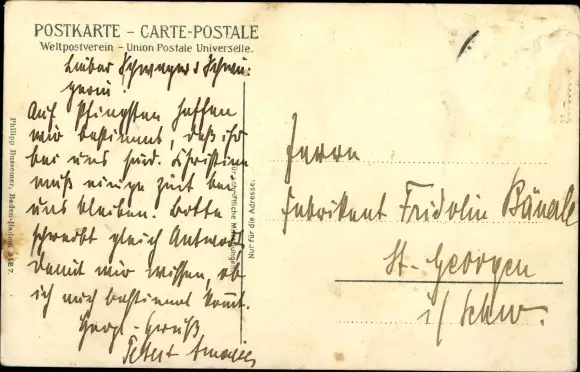 POSTKARTE – CARTE-POSTALE
Weltpostverein – Union Postale Universelle.
Lieber Schwager & Schwä-
gerin!
Auf Pfingsten hoffen
wir bestimmt, daß ihr
bei uns seid. Christine
muß einige Zeit bei
uns bleiben. Bitte
schreibt gleich Antwort
damit wir wissen, ob
ihr auch bestimmt kommt.
Herzl. Gruß
Peter & Amalie
Philipp Bussemer, Baden-Baden 3187.
Für schriftliche Mitteilungen
Nur für die Adresse.
Herrn
Fabrikant Fridolin
St. Georgen
i/Schw.